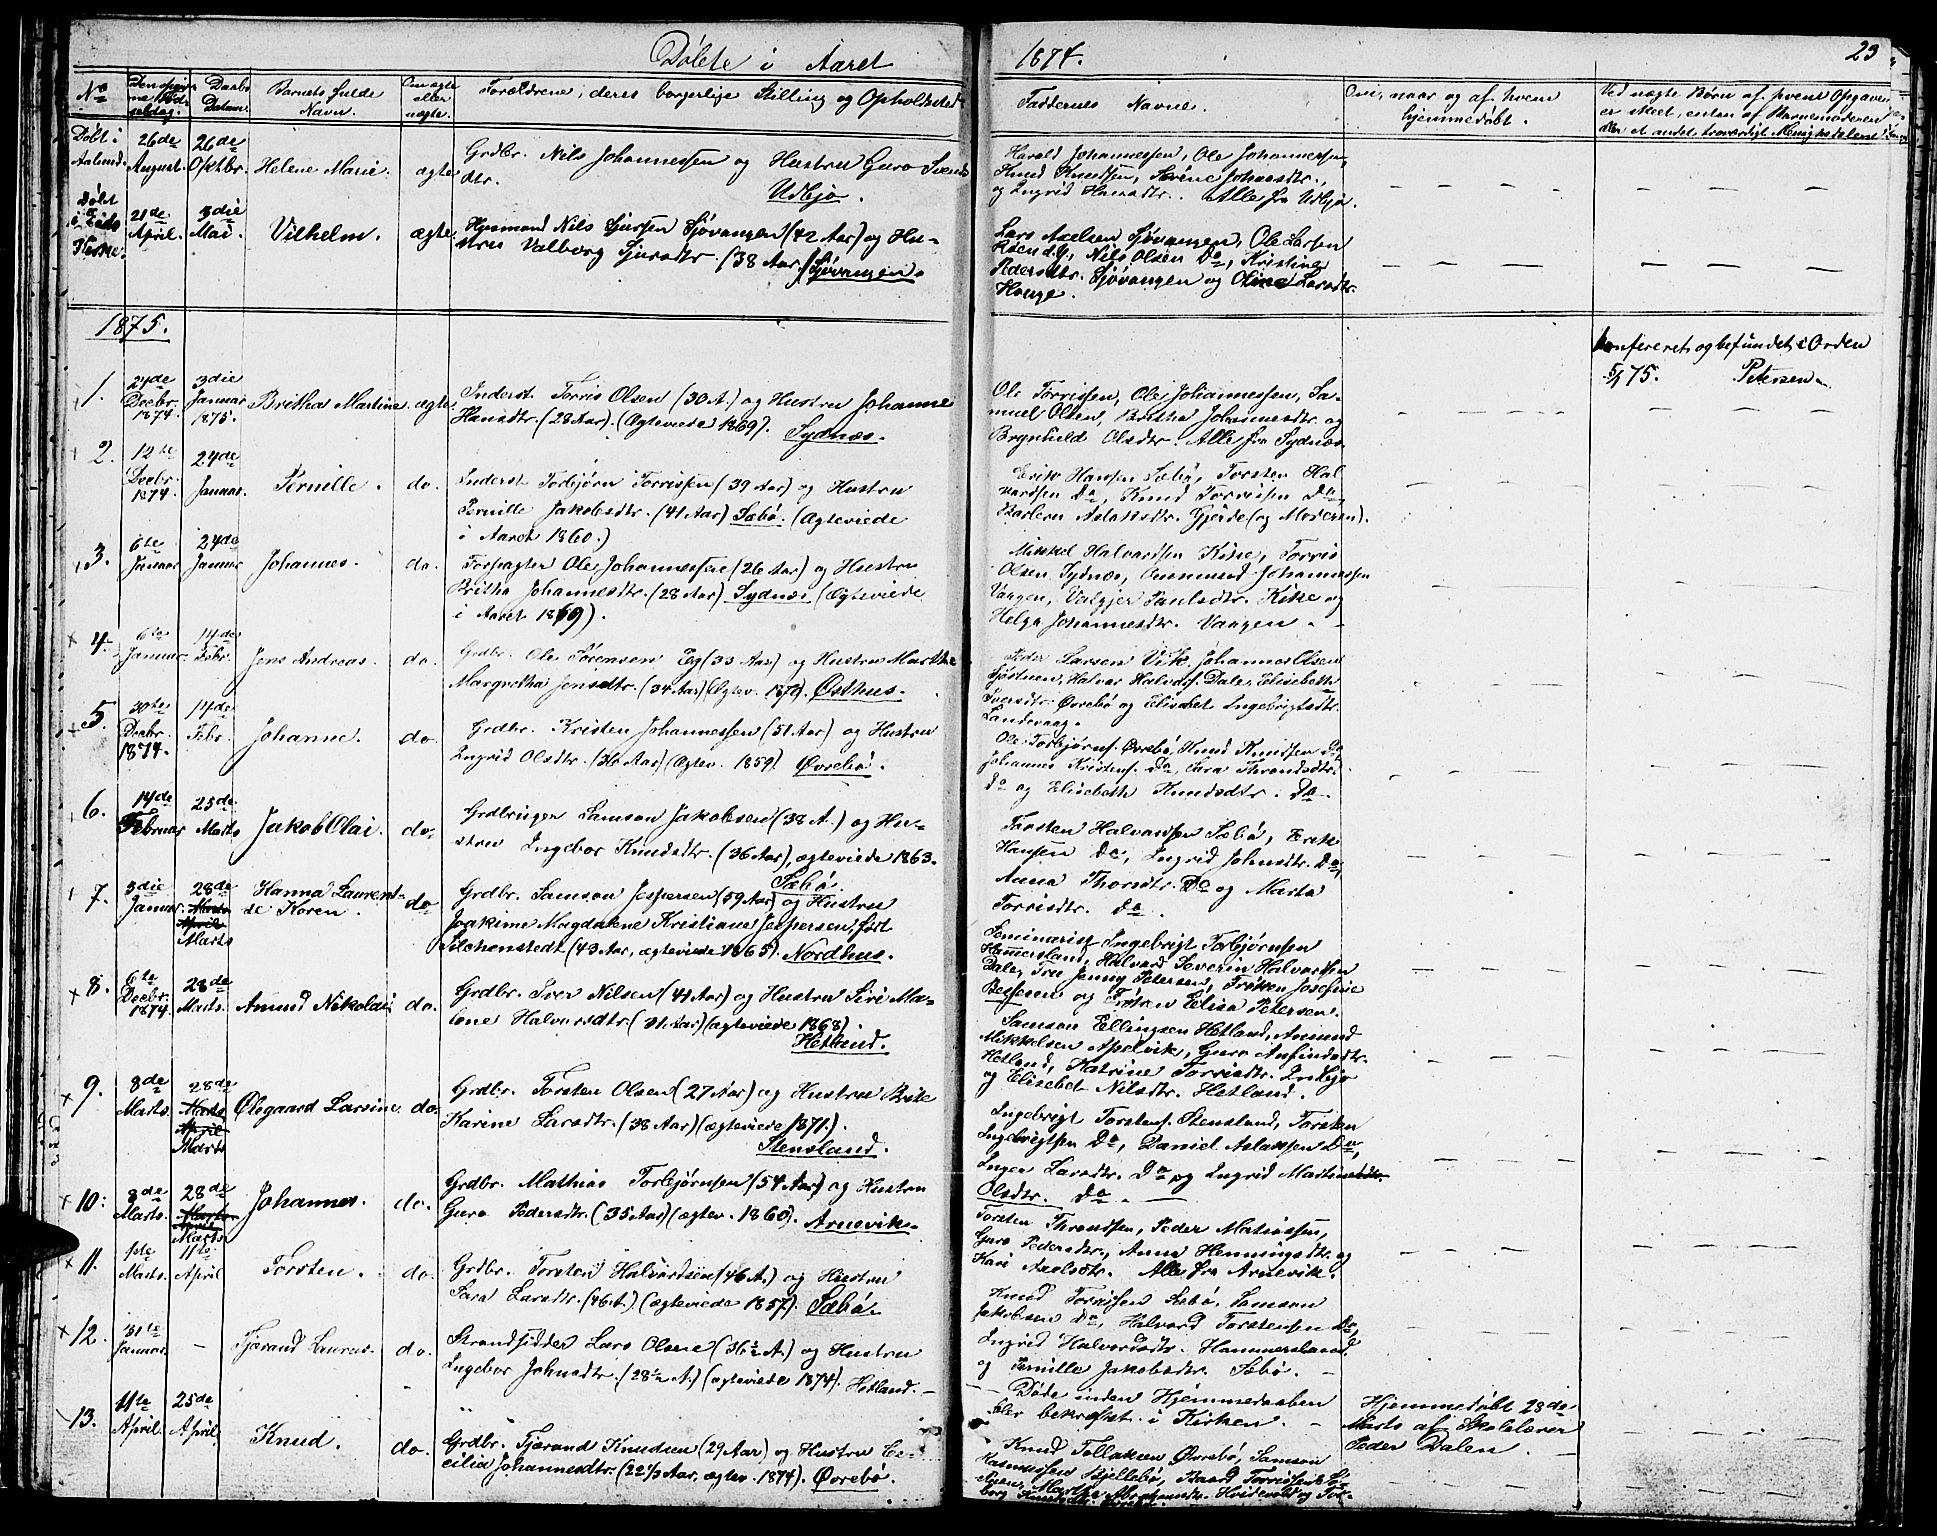 Døbte i Aaret
1874.
23
No
Barnets fulde
Navn.
Om ægte
eller
uægte.
Forældrene, deres borgerlige Stilling og Opholdsted
Faddernes Navne.
Om, naar og af hvem
hjemmedøbt.
Ved uægte Børn af hvem Opgaven
er skeet, enten af Barnemoderen
Døbt i
26de
August.
26de
Oktbr.
Helene Marie.
ægte
Grdbr. Nils Johannessen og Hustru Guro Svends
dtr.
Udbjo.
Harald Johannessen, Ole Johannessen
Knud Knudsen, Serine Johansdtr.,
og Ingrid Hansdtr. Alle fra Udbjo.
Døbt
i Eids
Kirke.
21de
April.
3die
Mai.
Vilhelm.
ægte.
Husmand Nils Sjursen Sjøvangen (42 Aar) og Hu-
stru Valborg Sjursdtr. (38 Aar) Sjøvangen.
Lars Axelsen Sjøvangen, Ole Larsen
Nils Olsen Do, Kristine
Pedersdtr. Sjøvangen og Oline Larsdtr.
Hauge.
1875.
Konfereret og befundet i Orden
5/1 75. Petersen
1.
24de
Decbr.
1874.
3die
Januar
1875.
Britha Martine.
ægte.
Inderst Torris Olsen (30 A.) og Hustru Johanne
Hansdtr. (28 Aar). (Ægteviede 1869). Sydnæs.
Ole Torrissen, Ole Johannessen, Sa-
muel Olsen, Britha Johannesdtr. og
Brynhild Olsdtr. Alle fra Sydnæs.
2.
12te
Decbr.
1874.
24de
Januar.
Pernille.
do.
Inderst Torbjørn Torrissen (39 Aar) og Hustru
Pernille Jakobsdtr. (41 Aar) Sæbø. (Ægteviede
i Aaret 1860.)
Erik Hansen Sæbø, Torsten Hal-
vardsen Do, Knud Torrissen Do
Aslaksdtr. Gjerde (og Moderen).
3.
6te
Januar
24de
Januar
Johannes.
do.
Forpagter Ole Johannessen (26 Aar) og Hustru
Britha Johannesdtr. (28 Aar) Sydnæs (Ægteviede
i Aaret 1869).
Mikkel Halvardsen Kike, Torris
Olsen Sydnæs, Ommund Johannessen
Vaagen, Valgjer Paulsdtr. Kike og
Helga Johannesdtr. Vaagen.
4.
6te
Januar
14de
Febr.
Jens Andreas.
do.
Grdbr. Ole Sørensen Eg (33 Aar) og Hustru Marthe
Margretha Jensdtr. (34 Aar) (Ægtev. 1874) Østhus.
Peder Larsen Vik, Johannes Olsen
Halvor Halvdsf. Dale, Elisebeth
Iversdtr. Øvrebø og Elisabet Ingebrigtsdtr.
Landevaag.
5.
30te
Decbr.
1874.
14de
Febr.
Johanne.
do.
Grdbr. Kristen Johannessen (51 Aar) og Hustru
Ingrid Olsdtr. (36 Aar) (Ægtev. 1859). Øvrebø.
Ole Torbjørns. Øvrebø, Knud Knudsen Do
Johannes Kristens. Do, Sara Throndsdtr.
Do og Elisebeth Knudsdtr. Do.
6.
14de
Februar
25de
Marts
Jakob Olai.
do.
Grdbruger Samson Jakobsen (38 A.) og Hu-
stru Ingebor Knudsdtr. (36 Aar), ægteviede 1863.
Sæbø.
Torsten Halvardsen Sæbø, Erik
Hansen Do, Ingrid Johnsdtr. Do,
Anna Thorsdtr. Do og Marta
Torrisdtr. Do.
7.
3die
Januar.
28de
Marts
April
Marts
Hanna Laurent-
se Koren.
do.
Grdbr. Samson Jespersen (59 Aar) og Hustru
Joakime Magdalene Kristiane Jespersen, født
(43 Aar, ægteviede 1865). Nordhus.
Seminarist Ingebrigt Torbjørnsen
Hammersland, Halvard Severin Halvardsen
Dale, Fru Jenny Petersen, Frøken Josefine
Bessesen og Frøken Elisa Petersen.
8.
6te
Decbr.
1874
28de
Marts.
Amund Nikolai
do.
Grdbr. Iver Nilsen (41 Aar) og Hustru Siri Ma-
lene Halvarsdtr. (31 Aar) (ægteviede 1868).
Hetland.
Samson Ellingsen Hetland, Amund
Mikkelsen Apelvik, Guro Anfindsdtr.
Hetland, Katrine Torrisdtr. Indbjo
og Elisebet Nilsdtr. Hetland.
9.
8de
Marts.
28de
Marts
April
Marts
Ølegaard Larsine
do.
Grdbr. Torsten Olsen (27 Aar) og Hustru Brite
Karine Larsdtr. (38 Aar) (ægteviede 1871.).
Stensland.
Ingebrigt Torstens. Stensland, Torsten
Ingebrigtsen Do, Daniel Aslaksen Do,
Inger Larsdtr. Do og Ingrid
Olsdtr. Do.
10.
8de
Marts.
28de
Marts
Johannes.
do.
Grdbr. Mathias Torbjørnsen (54 Aar) og Hustru
Guro Pedersdtr. (35 Aar) (ægtev. 1860). Arnevik.
Torsten Throndsen, Peder Matiassen,
Guro Pedersdtr., Anna Henningsdtr. og
Kari Axelsdtr. Alle fra Arnevik.
11.
1ste
Marts.
11te
April
Torsten.
do.
Grdbr. Torsten Halvardsen (46 A.) og Hustru
Sara Larsdtr. (46 A.) (ægteviede 1857). Sæbø.
Knud Torrissen Sæbø, Samson
Jakobsen Do, Halvard Torstensen Do,
Ingrid Halvardsdtr. Hammersland
og Pernille Jakobsdtr. Sæbø.
12.
31te
Januar.
Tjærand Laurus.
do.
Strandsidder Lars Olsen (36½ A.) og Hustru
Ingebor Johnsdtr. (28½ A.) (ægteviede 1874). Hetland.
Døde inden Hjemmedaaben
blev bekræftet i Kirken.
Hjemmedøbt 28de
Marts af Skolelærer
Peder Dalen.
13.
11te
April.
25de
April.
Knud.
do.
Grdbr. Tjærand Knudsen (29 Aar) og Hustru Ce-
cilia Johannesdtr. (22½ Aar, ægtev. 1874). Øvrebø.
Knud Tollaksen Øvrebø, Samson
Rasmussen Bjellebø, Baard Torrissen